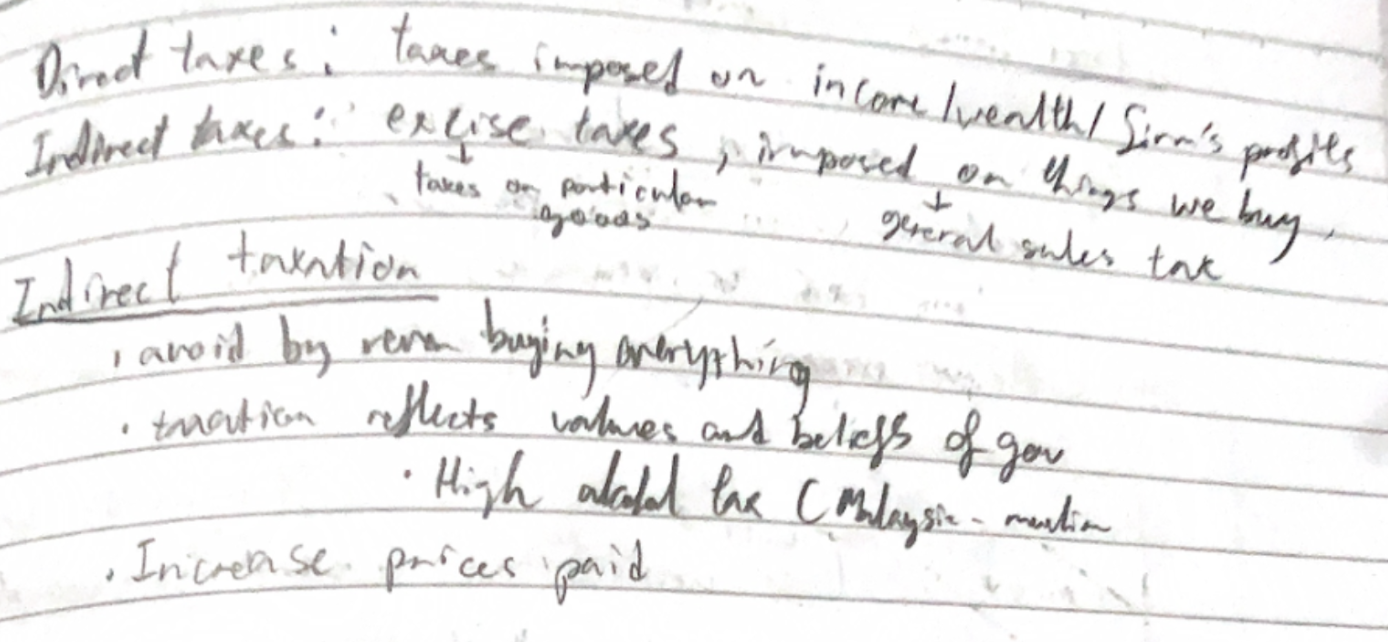 Direct taxes: taxes imposed on income/wealth/firm's profits
Indirect taxes: excise taxes, imposed on things we buy.
↓ taxes on particular goods
↓ general sales tax
Indirect taxation
· avoid by never buying anything
· taxation reflects values and beliefs of gov
· High alcohol tax (Malaysia -
· Increase prices paid